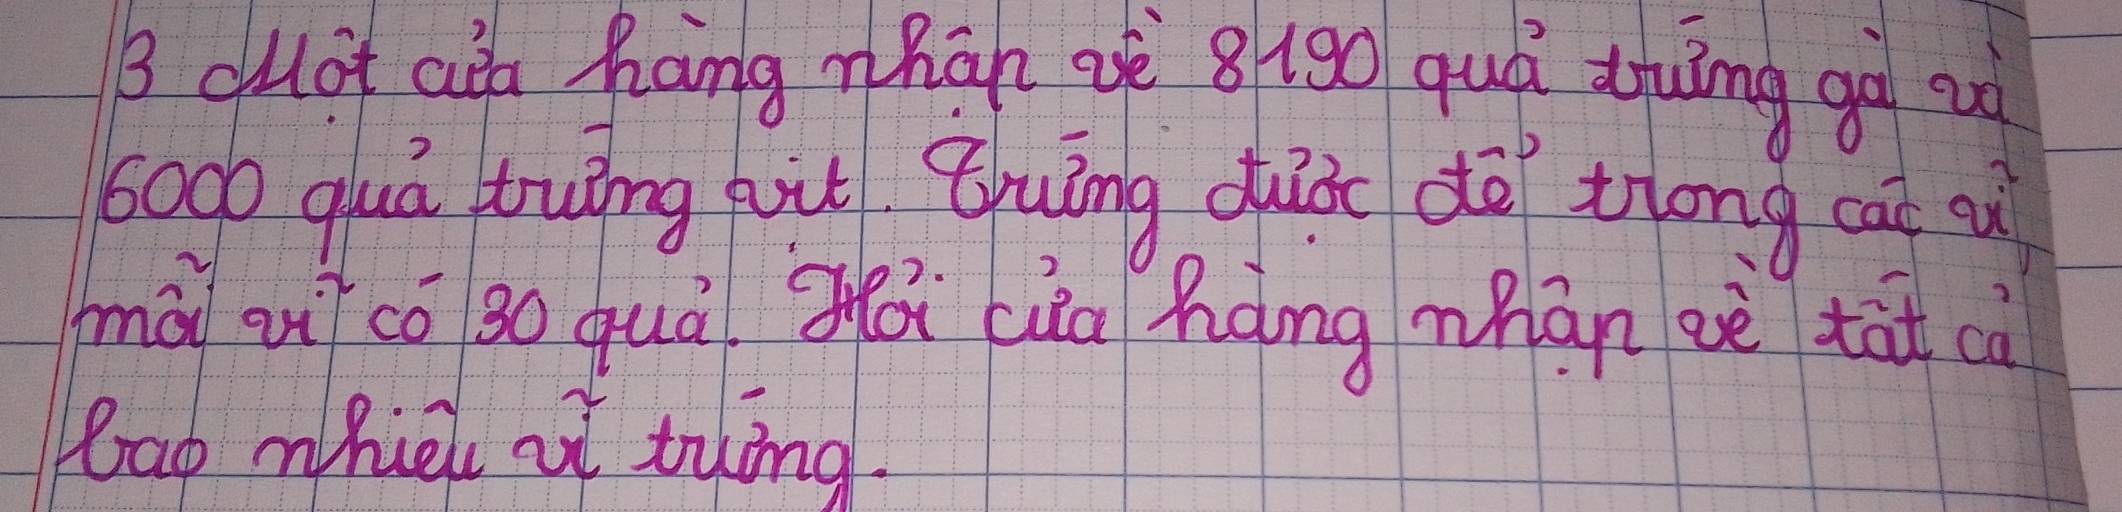 3 Một cửa hàng nhận về 8190 quả trứng gà và
6000 quả trứng vịt. Trứng được để trong các vỉ,
mỗi vĩ có 30 quả. Hỏi cửa hàng nhận về tất cả
bao nhiêu vĩ trứng.